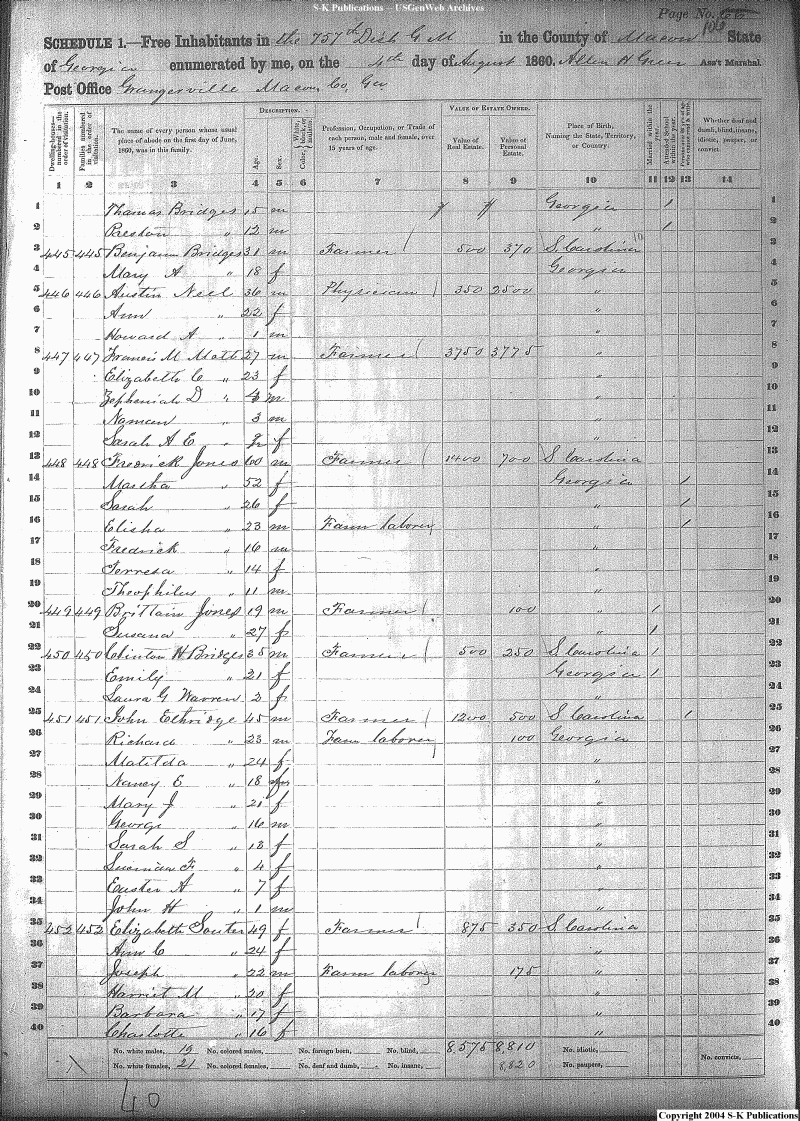 S-K Publications — USGenWeb Archives
Page No. 66
106
SCHEDULE 1.—Free Inhabitants in the 757th Dist G M in the County of Macon State
of Georgia enumerated by me, on the 4th day of August 1860. Allen H Greer Ass't Marshal.
Post Office Grangerville Macon Co, Geo
Dwelling-houses—numbered in the order of visitation.
Families numbered in the order of visitation.
The name of every person whose usual place of abode on the first day of June, 1860, was in this family.
DESCRIPTION.
Age.
Sex.
Color, White, black, or mulatto.
Profession, Occupation, or Trade of each person, male and female, over 15 years of age.
VALUE OF ESTATE OWNED.
Value of Real Estate.
Value of Personal Estate.
Place of Birth, Naming the State, Territory, or Country.
Married within the year.
Attended School within the year.
Whether deaf and dumb, blind, insane, idiotic, pauper, or convict.
1 2 3 4 5 6 7 8 9 10 11 12 13 14
1 Thomas Bridges 15 m Georgia 1 1
2 Preston " 12 m " 1 2
3 445 445 Benjamin Bridges 31 m Farmer 500 370 S. Carolina 3
4 Mary A " 18 f Georgia 4
5 446 446 Austin Neel 36 m Physician 350 2500 " 5
6 Ann " 22 f " 6
7 Howard A " 1 m " 7
8 447 447 Francis M Mott 27 m Farmer 3750 3775 " 8
9 Elizabeth C " 23 f " 9
10 Zepheniah D " 4 m " 10
11 Naman " 3 m " 11
12 Sarah A E " f " 12
13 448 448 Fredrick Jones 60 m Farmer 1400 700 S Carolina 13
14 Martha " 52 f Georgia 1 14
15 Sarah " 26 f " 1 15
16 Elisha " 23 m Farm laborer " 1 16
17 Fredrick " 16 m " 17
18 Terresa " 14 f " 18
19 Theophilus " 11 m " 19
20 449 449 Brittain Jones 19 m Farmer 100 " 1 20
21 Susana " 27 f " 1 21
22 450 450 Clinton H Bridges 35 m Farmer 500 250 S. Carolina 1 22
23 Emily " 21 f Georgia 1 23
24 Laura G Warren 2 f " 24
25 451 451 John Ethridge 45 m Farmer 1200 500 S Carolina 1 25
26 Richard " 23 m Farm laborer 100 Georgia 26
27 Matilda " 24 f " 27
28 Nancy E " 18 f " 28
29 Mary J " 21 f " 29
30 George " 16 m " 30
31 Sarah S " 13 f " 31
32 F " 4 f " 32
33 Easter A " 7 f " 33
34 John H " 1 m " 34
35 452 452 Elizabeth Souter 49 f Farmer 875 350 S. Carolina 35
36 Ann C " 24 f " 36
37 Joseph " 22 m Farm laborer 175 " 37
38 Harriet M " 20 f " 38
39 Barbara " 17 f " 39
40 Charlotte " 16 f " 40
No. white males, 19 No. colored males, No. foreign born, No. blind, 8,575 8,810 No. idiotic,
No. white females, 21 No. colored females, No. deaf and dumb, No. insane, 8,820 No. paupers, No. convicts,
40
Copyright 2004 S-K Publications